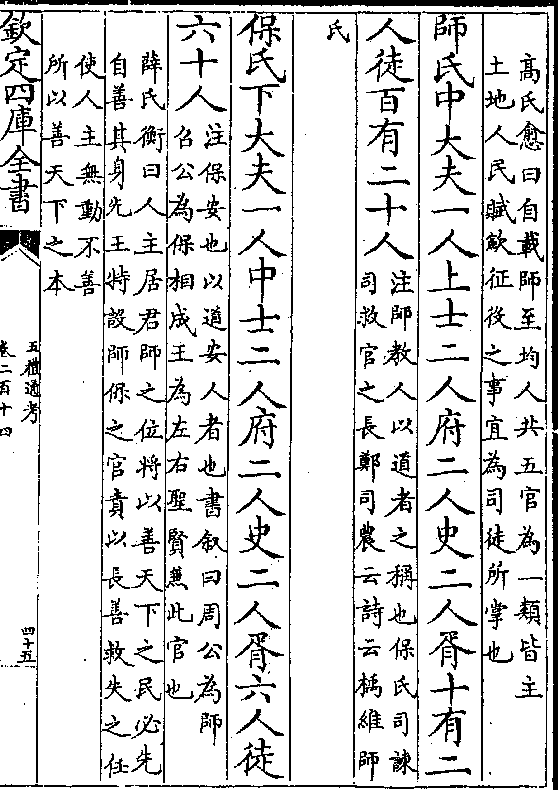 高氏愈曰自載師至均人共五官為一類皆主
土地人民賦斂征役之事宜為司徒所掌也
師氏中大夫一人上士二人府二人史二人胥十有二
人徒百有二十人
注師教人以道者之稱也保氏司諫
司救官之長鄭司農云詩云楀維師
氏
保氏下大夫一人中士二人府二人史二人胥六人徒
六十人
注保安也以道安人者也書叙曰周公為師
召公為保相成王為左右聖賢兼此官也
薛氏衡曰人主居君師之位將以善天下之民必先
自善其身先王特設師保之官責以長善救失之任
使人主無動不善
所以善天下之本
欽定四庫全書
五禮通考
卷二百十四
四十五